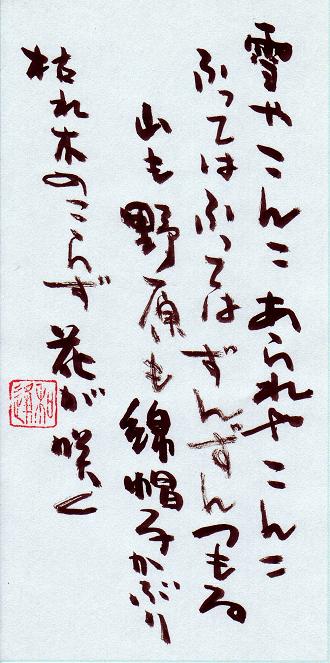 雪やこんこ あられやこんこ
ふってはふっては ずんずんつもる
山も野原も綿帽子かぶり
枯れ木のこらず 花が咲く